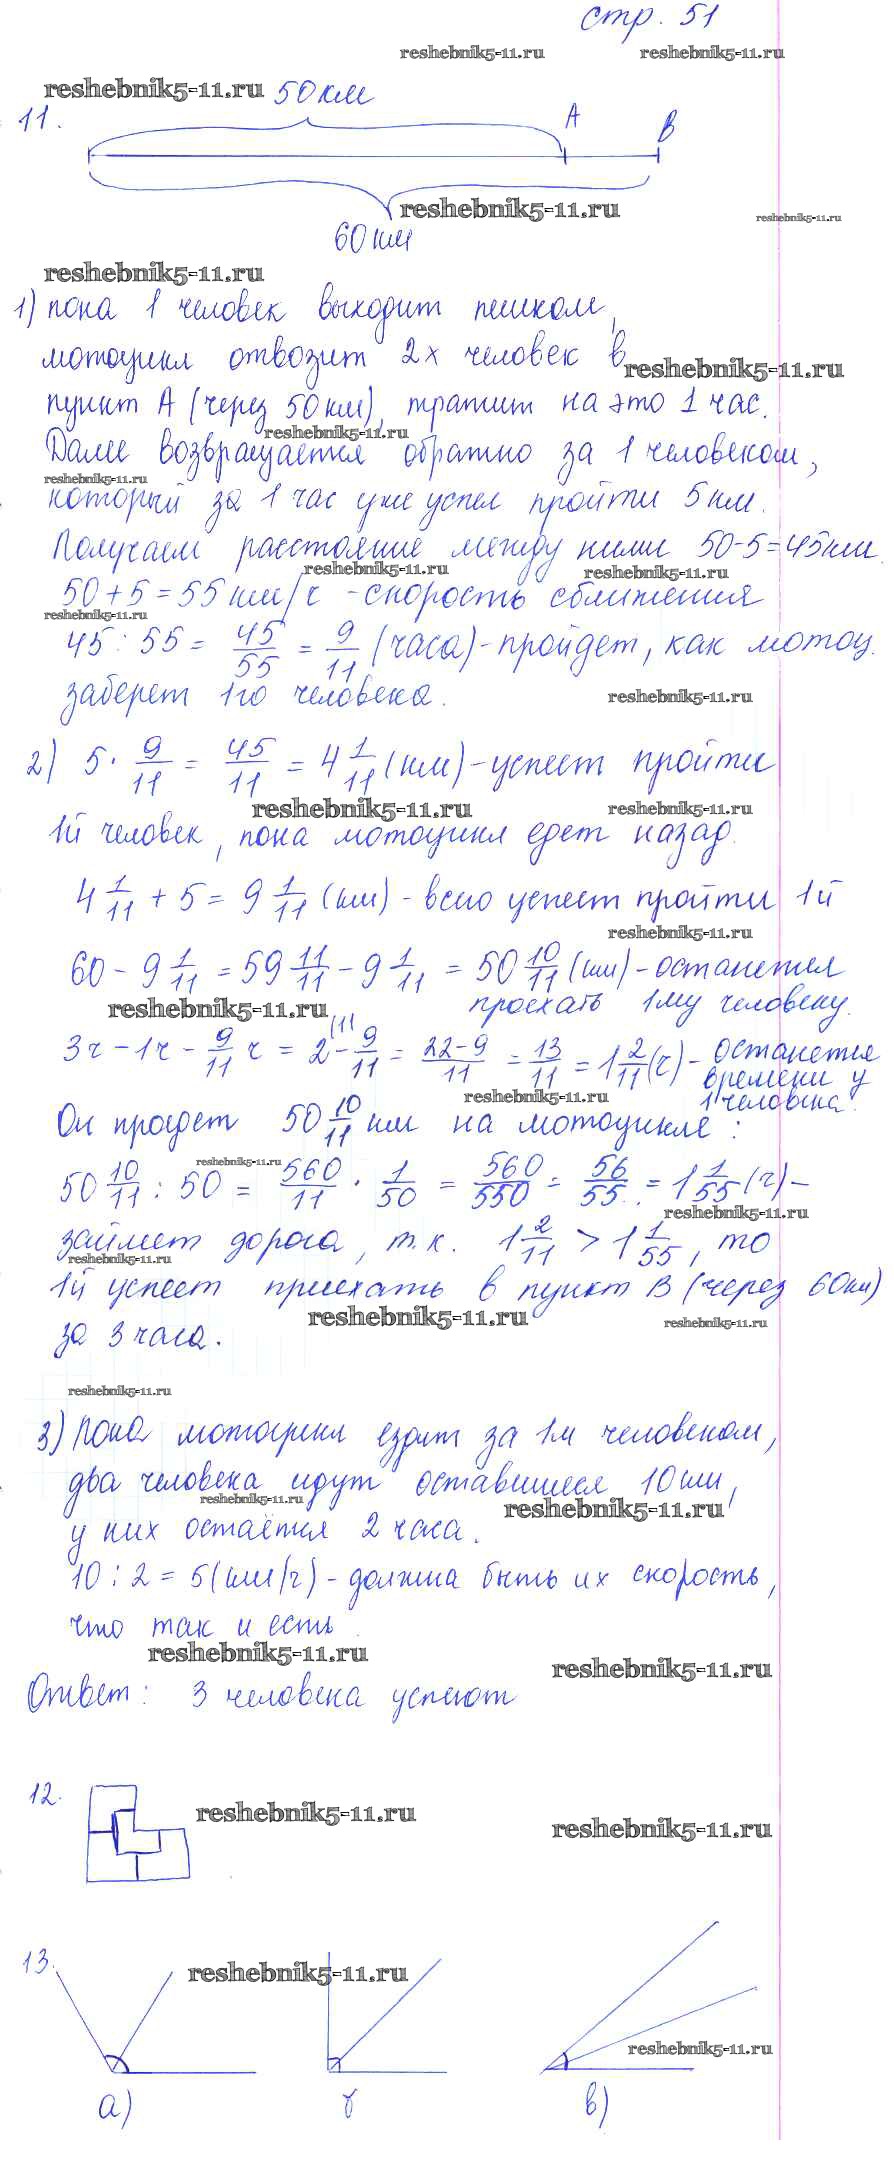 стр. 51
reshebnik5-11.ru reshebnik5-11.ru
reshebnik5-11.ru 50 км
11. A B
reshebnik5-11.ru
reshebnik5-11.ru
60 км
reshebnik5-11.ru
1) пока 1 человек выходит пешком,
мотоцикл отвозит 2х человек в
reshebnik5-11.ru
пункт А (через 50 км), тратит на это 1 час.
reshebnik5-11.ru
Далее возвращается обратно за 1 человеком,
reshebnik5-11.ru
который за 1 час уже успел пройти 5 км.
Получаем расстояние между ними 50-5=45 км.
reshebnik5-11.ru reshebnik5-11.ru
50+5=55 км/ч - скорость сближения
reshebnik5-11.ru
45 : 55 = 45/55 = 9/11 (часа) - пройдет, как мотоц.
заберет 1го человека.
reshebnik5-11.ru
2) 5 · 9/11 = 45/11 = 4 1/11 (км) - успеет пройти
reshebnik5-11.ru reshebnik5-11.ru
1й человек, пока мотоцикл едет назад.
4 1/11 + 5 = 9 1/11 (км) - всего успеет пройти 1й
reshebnik5-11.ru
60 - 9 1/11 = 59 11/11 - 9 1/11 = 50 10/11 (км) - останется
reshebnik5-11.ru проехать 1му человеку.
3ч - 1ч - 9/11 ч = 2 (11 - 9/11 = 22-9/11 = 13/11 = 1 2/11 (ч) - останется
времени у
reshebnik5-11.ru 1 человека.
Он проедет 50 10/11 км на мотоцикле:
reshebnik5-11.ru
50 10/11 : 50 = 560/11 · 1/50 = 560/550 = 56/55 = 1 1/55 (ч) -
reshebnik5-11.ru
займет дорога, т.к. 1 2/11 > 1 1/55, то
reshebnik5-11.ru
1й успеет приехать в пункт В (через 60 км)
reshebnik5-11.ru reshebnik5-11.ru
за 3 часа.
reshebnik5-11.ru
3) Пока мотоцикл ездит за 1м человеком,
два человека идут оставшиеся 10 км,
reshebnik5-11.ru reshebnik5-11.ru
у них остаётся 2 часа.
10 : 2 = 5 (км/ч) - должна быть их скорость,
что так и есть.
reshebnik5-11.ru
reshebnik5-11.ru
Ответ: 3 человека успеют
12.
reshebnik5-11.ru
reshebnik5-11.ru
13.
reshebnik5-11.ru
reshebnik5-11.ru
а) в)